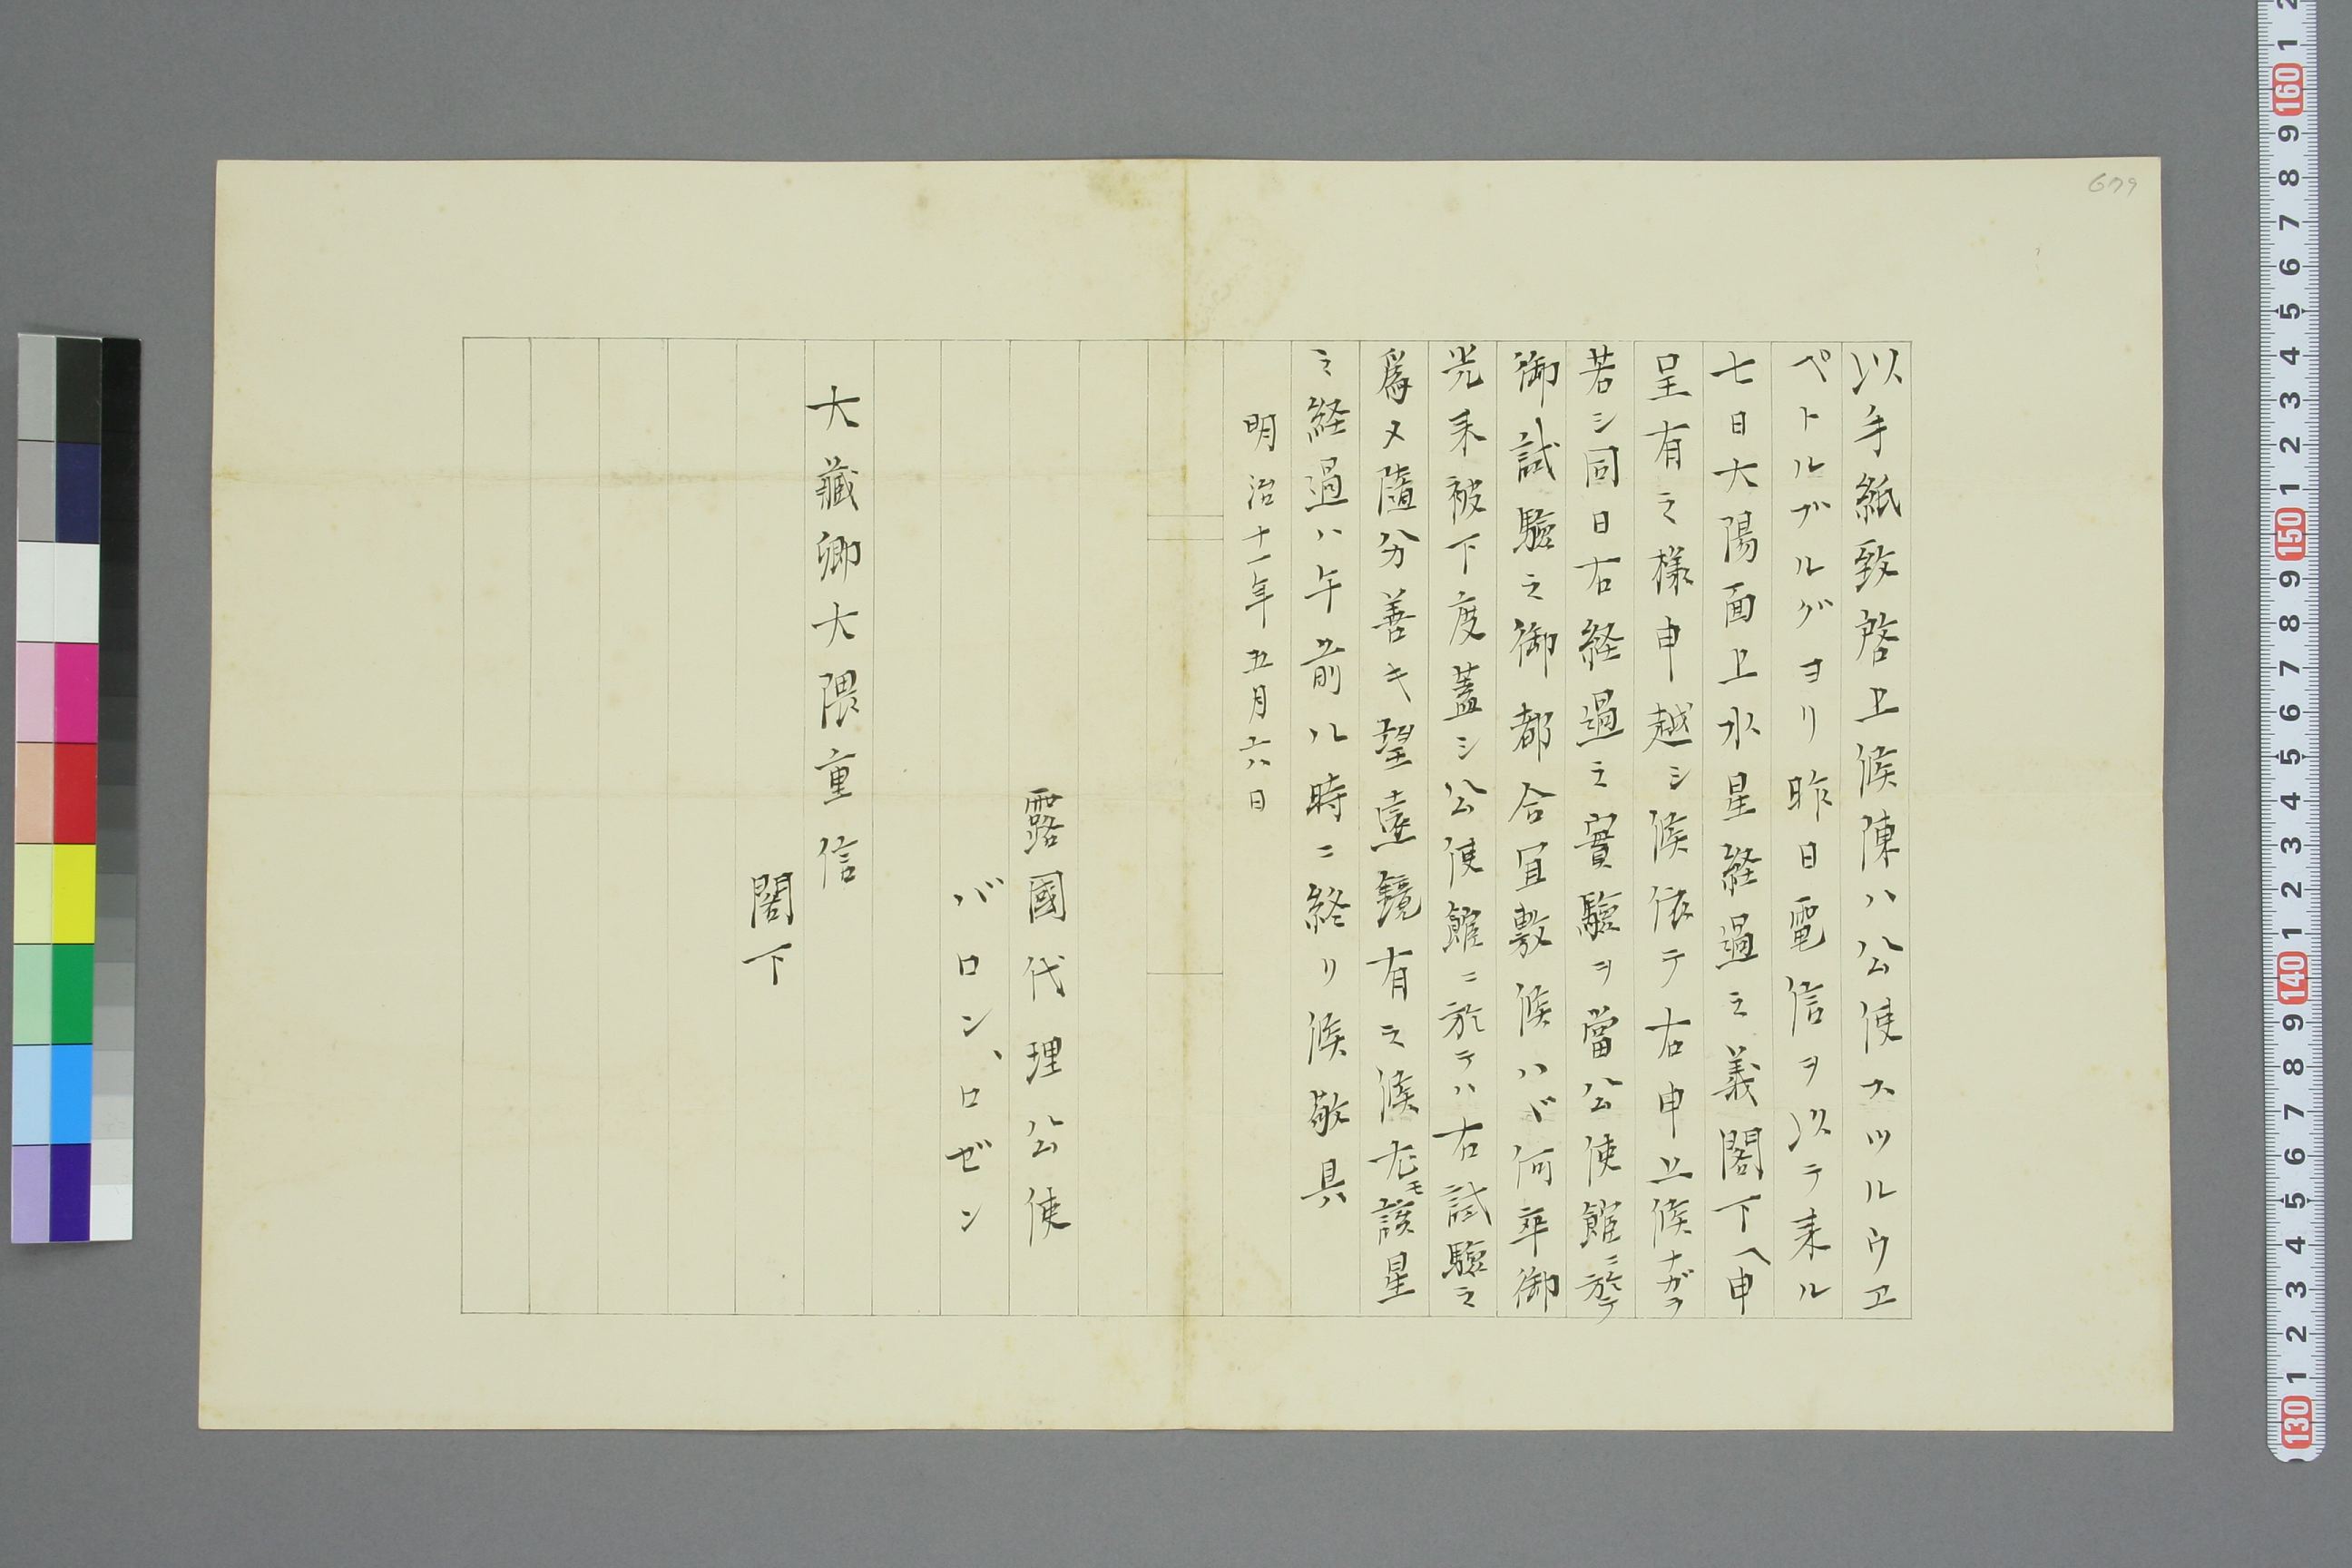 以手紙致啓上候陳ハ公使スツルウヱ
ペトルブルグヨリ昨日電信ヲ以テ来ル
七日大陽面上水星経過之義閣下ヘ申
呈有之様申越シ候依テ右申上候ナガラ
若シ同日右経過之實驗ヲ當公使館ニ於テ
御試驗之御都合宜敷候ハヾ何卒御
光来被下度蓋シ公使館ニ於テハ右試驗之
爲メ隨分善キ望遠鏡有之候尤モ該星
之経過ハ午前八時ニ終リ候敬具
明治十一年五月六日
露國代理公使
バロン、ロゼン
大藏卿大隈重信
閣下
679